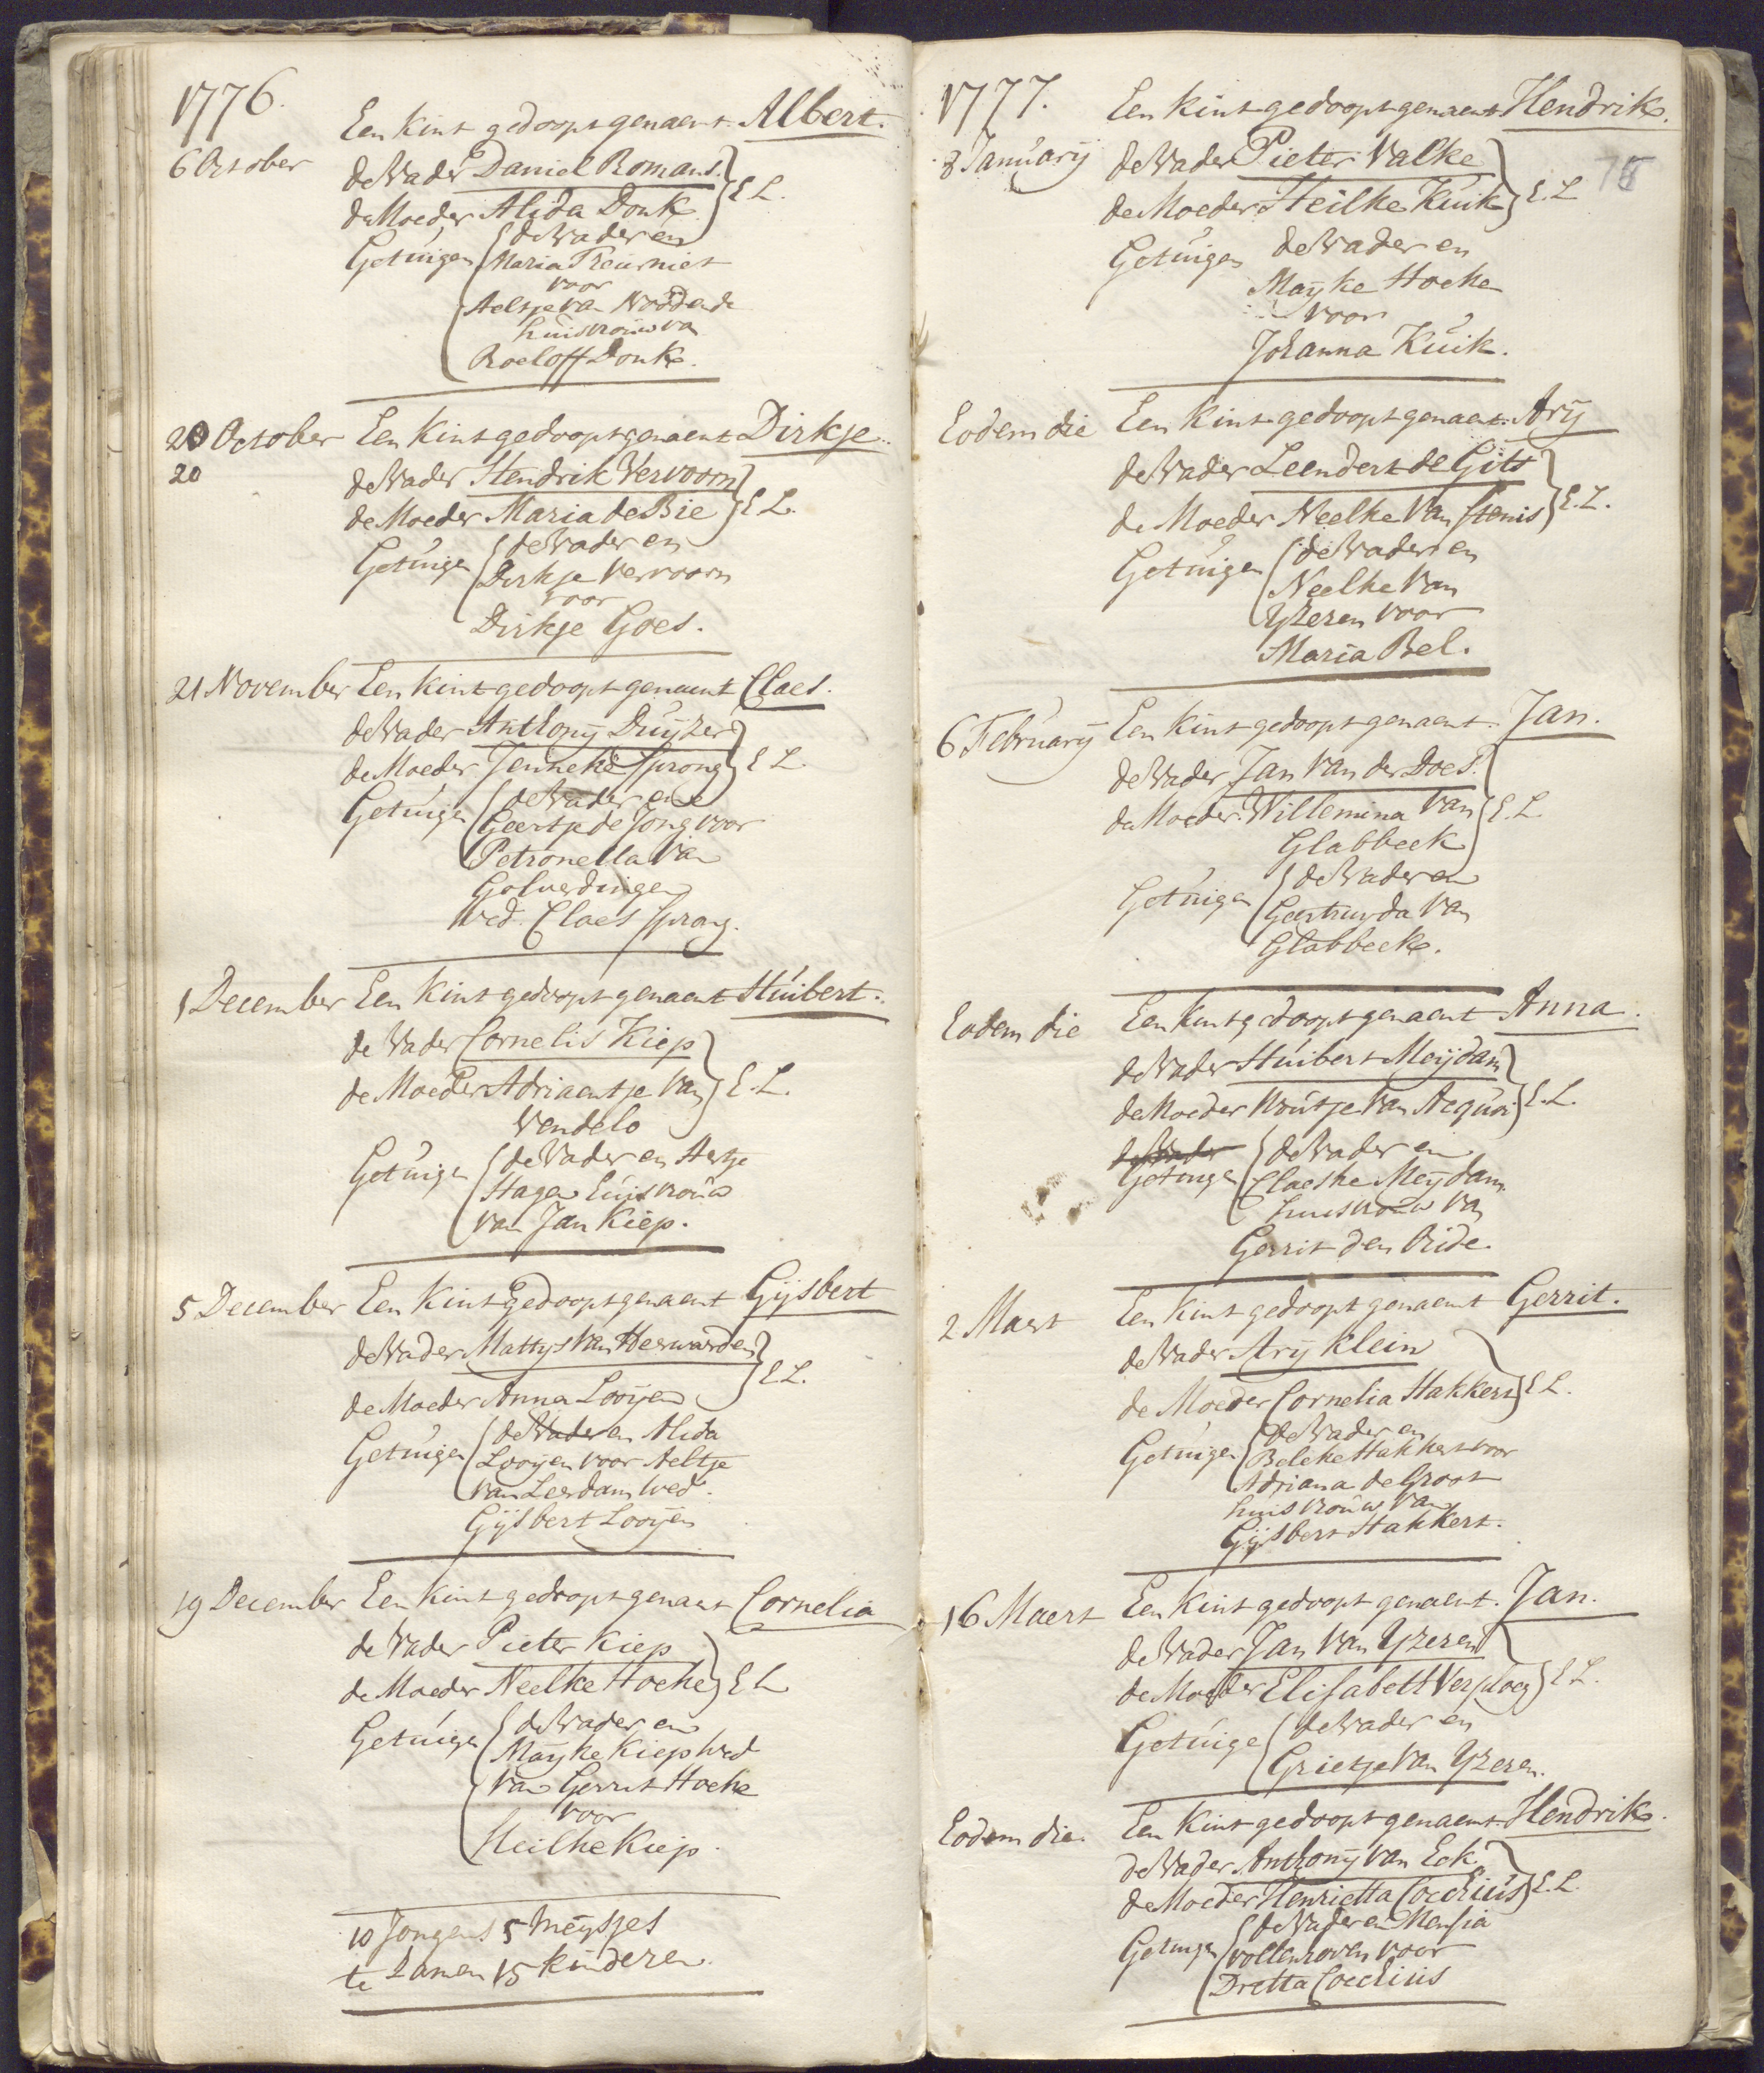 1776.
Een kint gedoopt genaemt Albert.
6 October
de Vader Daniel Romans.
de Moeder Alida Donk } E L.
Getuigen de Vader en
Maria Treurniet
voor
Aeltje van
huisvrouw van
Roeloff Donk.
20 October Een kint gedoopt genaemt Dirkje.
20
de Vader Hendrik Vervoorn
de Moeder Maria de Bie } E L.
Getuigen de Vader en
Dirkje Vervoorn
voor
Dirkje Goes.
21 November Een kint gedoopt genaemt Claes.
de Vader Anthonij Duijzer
de Moeder Jenneke Sprong } E L.
Getuigen de Vader en
Geertje de Jong voor
Petronella van
Golverdingen
Wed. Claes Sprong.
1 December Een kint gedoopt genaemt Huibert.
de Vader Cornelis Kiep
de Moeder Adriaentje van } E. L.
Vendelo
Getuigen de Vader en Aertje
Hagen huisvrouw
van Jan Kiep.
5 December Een kint gedoopt genaemt Gijsbert
de Vader Mattys van Herwarden
de Moeder Anna Looijen } E L.
Getuigen de Vader en Alida
Looijen voor Aeltje
van Leerdam wed.
Gijsbert Looijen
19 December Een kint gedoopt genaemt Cornelia
de Vader Pieter Kiep
de Moeder Neelke Hoeke } E L
Getuigen de Vader en
Mayke Kiep wed
van Gerrit Hoeke
voor
Heilke Kiep.
10 Jongens 5 Meysjes
te Zamen 15 kinderen.
1777.
Een kint gedoopt genaemt Hendrik.
75
3 January de Vader Pieter Valke
de Moeder Heilke Kuik } E. L
Getuigen de Vader en
Mayke Hoeke
voor
Johanna Kuik.
Eodem die Een kint gedoopt genaemt Arij
de Vader Leendert de Gits
de Moeder Neelke van Stenis } E. L.
Getuigen de Vader en
Neelke van
Yzeren voor
Maria Bel.
6 February Een kint gedoopt genaemt Jan.
de Vader Jan van der Does.
de Moeder Willemina van } E. L.
Glabbeek
Getuigen de Vader en
Geertruyda van
Glabbeek.
Eodem die Een kint gedoopt genaemt Anna.
de Vader Huibert Meijdam
de Moeder Woutje van Acquoi } E. L.
de Vader
Getuigen de Vader en
Claeske Meydam
huisvrouw van
Gerrit den Oude.
2 Maert Een kint gedoopt genaemt Gerrit.
de Vader Arij Klein
de Moeder Cornelia Hakkert } E L.
Getuigen de Vader en
Beleke Hakkert voor
Adriana de Groot
huisvrouw van
Gijsbert Hakkert.
16 Maert Een kint gedoopt genaemt Jan.
de Vader Jan van Yzeren
de Moeder Elisabeth Verploeg } E L.
Getuige de Vader en
Grietje van Yzeren.
Eodem die. Een kint gedoopt genaemt Hendrik.
de Vader Anthonij van Eck.
de Moeder Henrietta Coccejus } E. L.
Getuigen de Vader en Mensia
Vollenhoven voor
Dretta Coccejus